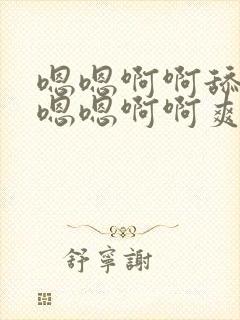 嗯嗯啊啊舔
嗯嗯啊啊爽
舒寧謝